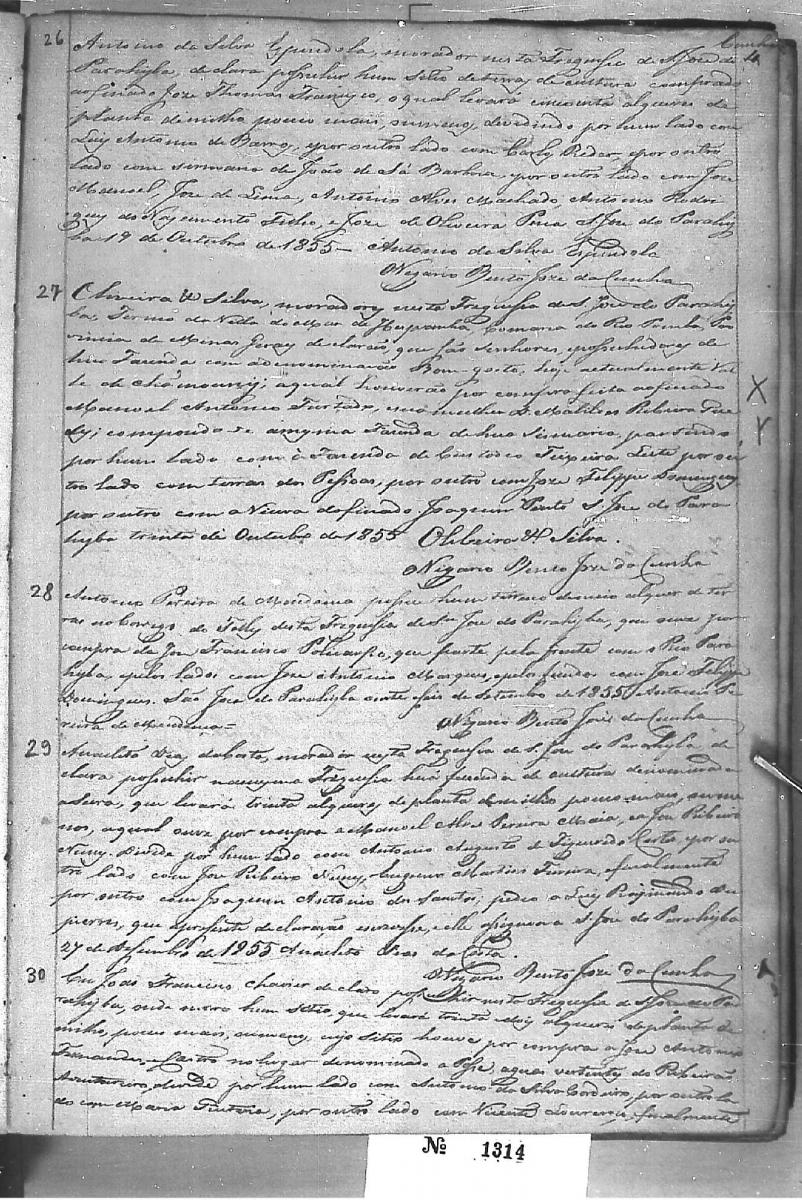 Cunha
4
26
Antonio da Silva Espindola, morador nesta Freguesia de S. Jose do
Parahyba, declara possuhir hum Sitio de terras de cultura comprado
ao finado Joze Thomas Francisco, o qual levará cincoenta alqueires de
planta de milho pouco mais, ou meno, devedindo por hum lado com
Luiz Antonio de Barros, e por outro lado com Carlos Peder, e por outro
lado com sesmaria de João de Sá Barboza, e por outro lado com Joze
Manoel Joze de Lima, Antonio Alves Machado, Antonio Rodri
gues do Nascimento Filho, e Joze de Oliveira Pena S. Joze do Parahy
ba 19 de Outubro de 1855 - Antonio da Silva Espindola
O Vigario Bento Joze da Cunha
27
Oliveira & Silva, moradores nesta Freguesia de S. Joze do Parahy
ba, Termo da Villa do Mar de Hespanha, Comarca do Rio Pomba, Pro
vincia de Minas Geraes declarão, que são Senhores, e possuhidores de
hua Fazenda com a denominação Bom-gosto, hoje actualmente Val
le de Chamouny; a qual houverão por compra feita ao finado
Manoel Antonio Furtado, e sua mulher D.
compondo-se a mesma Fazenda de hua Sismaria, partindo
por hum lado com a Fazenda de Custodio Teixeira Leite por ou
tro lado com terras dos Pessoas, por outro com Joze Felippe Domingues
por outro com a Viuva do finado Joaquim Pinto S. Joze do Para
hyba trinta de Outubro de 1855 Oliveira & Silva.
O Vigario Bento Joze da Cunha
X
Y
28
Antonio Pereira de Mendonsa possue hum terreno de meio alquer de ter
ras no Corrego do desta Freguesia de São Joze do Parahyba, que ouve por
compra da Joze Francisco Policarpo, que parte pela frente com o Rio Para
hyba, e pelos lados com Joze Antonio Marques, e pelos fundos com Joze Felippe
Domingues. São Joze do Parahyba vinte seis de Setembro de 1855 Antonio Pe
reira de Mendonsa =
O Vigario Bento Joze da Cunha
29
Anacleto Dias da Costa, morador nesta Freguesia de S. Joze do Parahyba, de
clara possuhir na mesma Freguesia huá fazenda de cultura denominada
a Serra, que levará trinta alqueires de planta de milho pouco mais, ou me
nos, a qual ouve por compra a Manoel Alves Pereira Maia, e a Joze Ribeiro
Nunes. Divide por hum lado com Antonio Augusto de Figueredo Cortes, e por ou
tro lado com Joze Ribeiro Nunes, Eugenio Martins Ferreira, e finalmente
por outro com Joaquim Antonio dos Santos; pedio a Luiz Raymundo
que a presente declaração escrevesse, e elle assignava S. Joze do Parahyba
27 de Desembro de 1855 Anacleto Dias da Costa.
O Vigario Bento Joze da Cunha
30
Eu Lodo Francisco Chavier declaro possuhir nesta Freguesia de S. Joze do Pa
rahyba, onde moro hum Sitio, que levará trinta e dois alqueires de planta de
milho, pouco mais, ou menos, cujo Sitio houve por compra a Joze Antonio
Fernandes e Castro no lugar denominado a aguas vertentes do Ribeirão
Aventureiro, divide por hum lado com Antonio da Silva Cordeiro, por outro la
do com Maria por outro lado com Vicente Lourenço, finalmente
Nº 1314